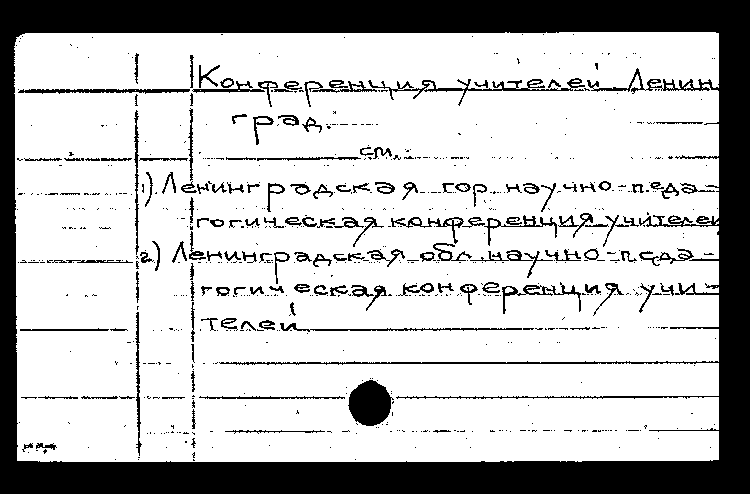 Конференция учителей Ленин
град.
см.
1) Ленинградская гор. научно-педа-
гогическая конференция учителей
2) Ленинградская обл. научно-педа-
гогическая конференция учи-
телей